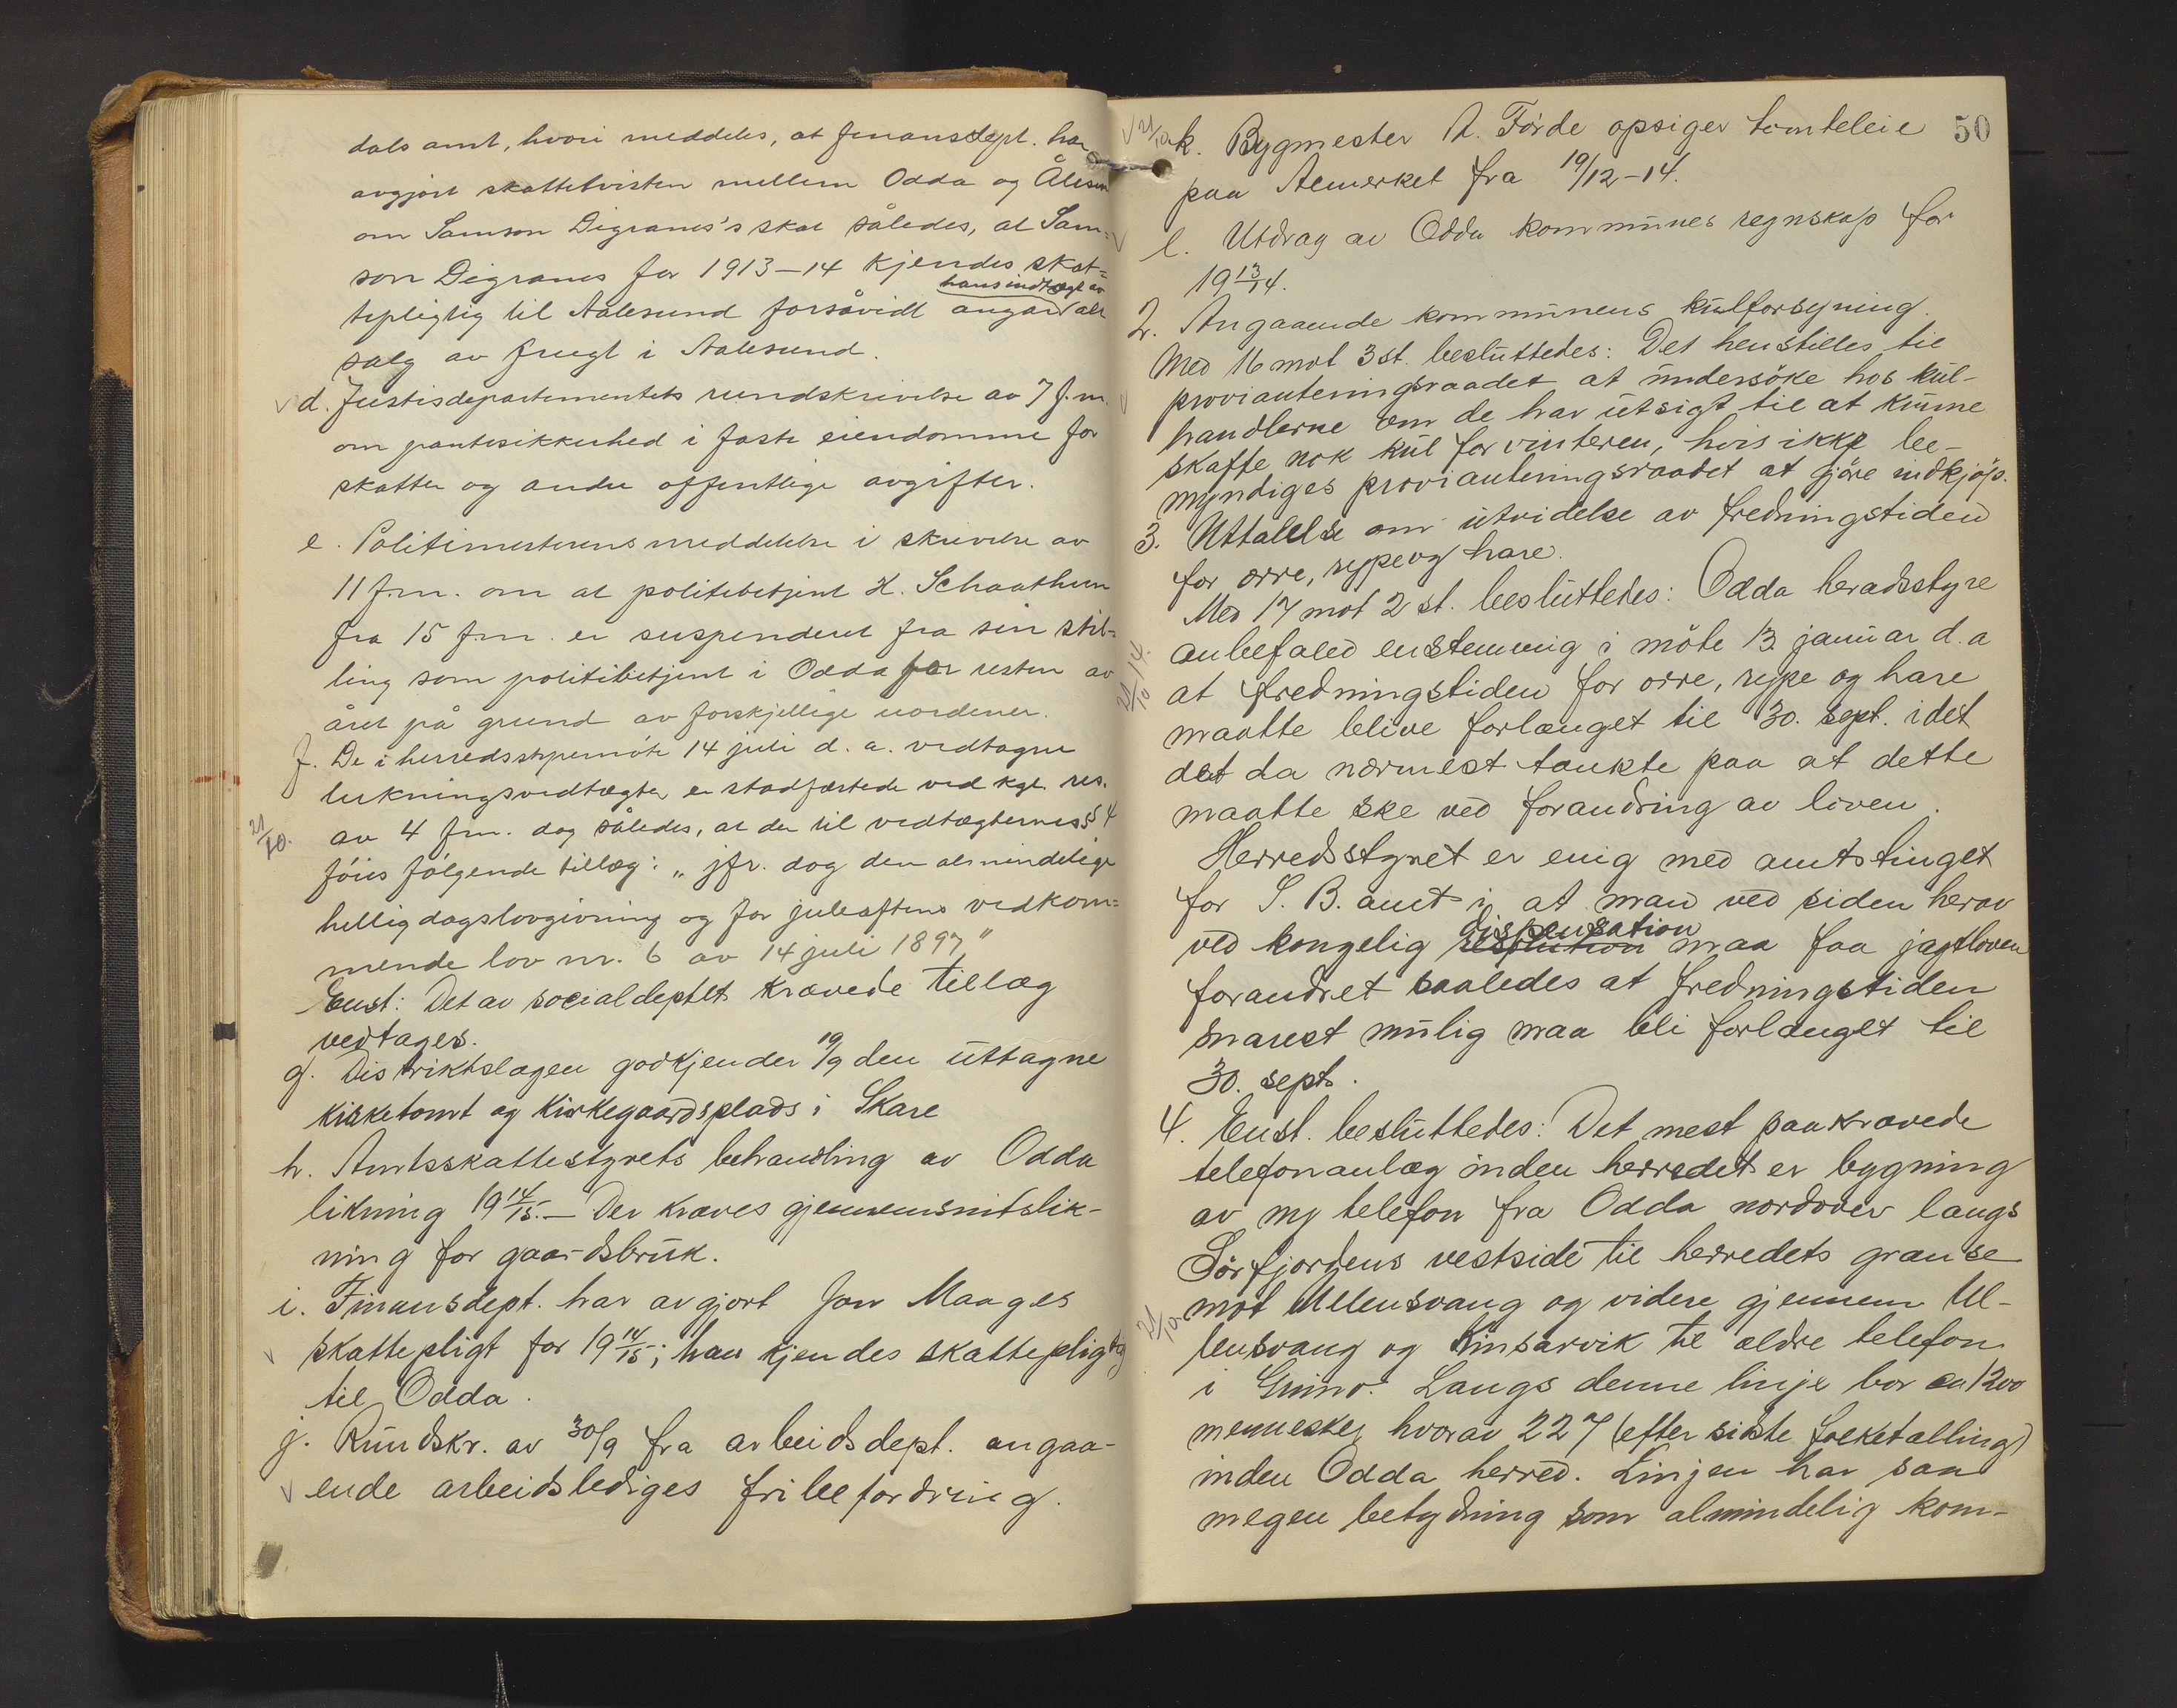 dals amt, hvori meddeles, at finansdept. har
avgjort skattetvisten mellem Odda og Ålesund
om Samson Digranes's skat således, at Sam=
son Digranes for 1913–14 kjendes skat=
hans indtægt av
tepligtig til Aalesund forsåvidt angår alt
salg av frugt i Aalesund.
d. Justisdepartementets rundskrivelse av 7 f.m.
om pantesikkerhed i faste eiendomme for
skatter og andre offentlige avgifter.
e. Politimesterens meddelelse i skrivelse av
11 f.m. om at politibetjent H. Schaathun
fra 15 f.m. er suspenderet fra sin stil-
ling som politibetjent i Odda for resten av
året på grund av forskjellige uordener.
f. De i herredsstyremøte 14 juli d. a. vedtagne
lukningsvedtægter er stadfæstede ved kgl. res.
21/10. av 4 f.m. dog således, at der til vedtægternes § 4
föies fölgende tillæg: „jfr. dog den almindelige
helligdagslovgivning og for juleaftens vedkom=
mende lov nr. 6 av 14 juli 1897"
Enst: Det av socialdeptet krævede tillæg
vedtages.
g. Distriktslægen godkjender 19/9 den uttagne
kirketomt og kirkegaardsplads i Skare
h. Amtsskattestyrets behandling av Odda
likning 19 14/15. – Der kræves gjennemsnitslik-
ning for gaardsbruk.
i. Finansdept. har avgjort Jon Maages
skattepligt for 19 14/15; han kjendes skattepligtig
til Odda.
j. Rundskr. av 30/9 fra arbeidsdept. angaa-
ende arbeidslediges fribefordring.
50
21/10 k. Bygmester A. Förde opsiger tomteleie
paa Almerket fra 19/12–14.
l. Utdrag av Odda kommunes regnskap for
19 13/14.
2. Angaaende kommunens kulforsyning.
Med 16 mot 3 st. besluttedes: Det henstilles til
provianteringsraadet at undersöke hos kul-
handlerne om de har utsigt til at kunne
skaffe nok kul for vinteren, hvis ikke be-
myndiges provianteringsraadet at gjöre indkjöp.
3. Uttalelse om utvidelse av fredningstiden
for orre, rype og hare.
Med 17 mot 2 st. besluttedes: Odda heradsstyre
21/10-14. anbefaled enstemmig i möte 13. januar d. a
at fredningstiden for orre, rype og hare
maatte blive forlænget til 30. sept. idet
det da nærmest tænkte paa at dette
maatte ske ved forandring av loven.
Herredsstyret er enig med amtstinget
for S. B. amt i, at man ved siden herav
dispensation
ved kongelig resolution maa faa jagtloven
forandret saaledes at fredningstiden
snarest mulig maa bli forlænget til
30. sept.
4. Enst. besluttedes: Det mest paakrævede
telefonanlæg inden herredet er bygning
av ny telefon fra Odda nordover langs
Sörfjordens vestside til herredets grænse
21/10. mot Ullensvang og videre gjennem Ul-
lensvang og Kinsarvik til ældre telefon
i Grimo. Langs denne linje bor ca 1200
mennesker hvorav 227 (efter sidste folketælling)
inden Odda herred. Linjen har saa
megen betydning som almindelig kom-